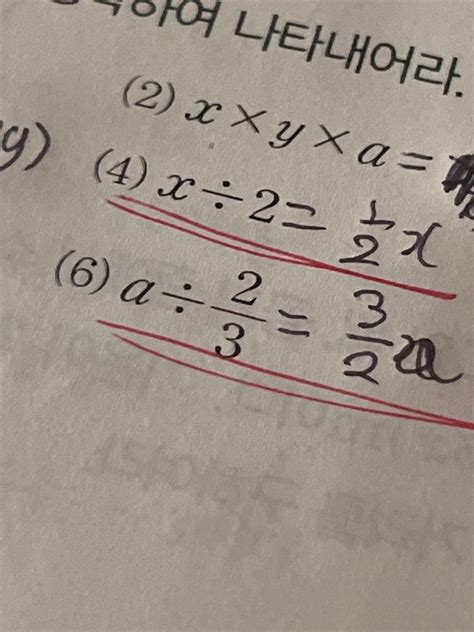 하여 나타내어라.
(2) x × y × a =
y)
(4) x ÷ 2 = 1/2 x
(6) a ÷ 2/3 = 3/2 a